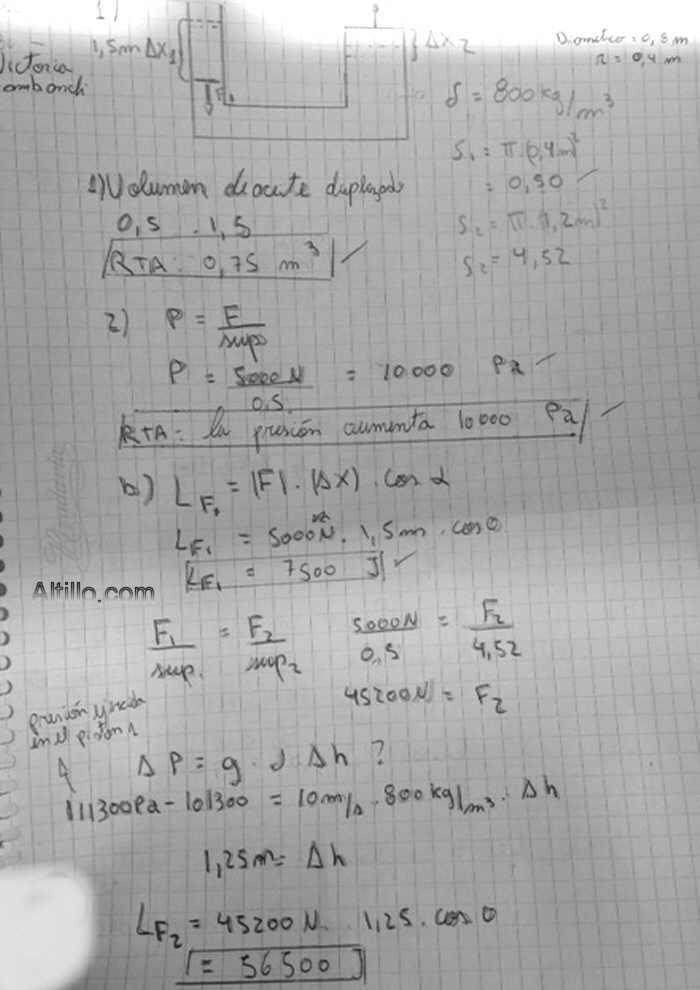 1)
1,5m Δx1
F1
Δx2
Diametro = 0,8 m
r = 0,4 m
Victoria
δ = 800kg/m³
S1 = π.(0,4m)²
= 0,50
S2 = π.(1,2m)²
S2 = 4,52
1) Volumen de aceite desplazado
0,5 . 1,5
RTA: 0,75 m³
2) P = F/sup
P = 5000N/0,5 = 10000 Pa
RTA: la presión aumenta 10000 Pa
b) LF1 = |F|.|Δx|. cos α
LF1 = 5000N. 1,5m . cos 0
LF1 = 7500 J
Altillo.com
F1/sup1 = F2/sup2
5000N/0,5 = F2/4,52
45200N = F2
presión ejercida
en el piston 1
Δ P = g . δ Δh ?
111300Pa - 101300 = 10m/s . 800kg/m³ . Δh
1,25m = Δh
LF2 = 45200 N. 1,25 . cos 0
= 56500 J